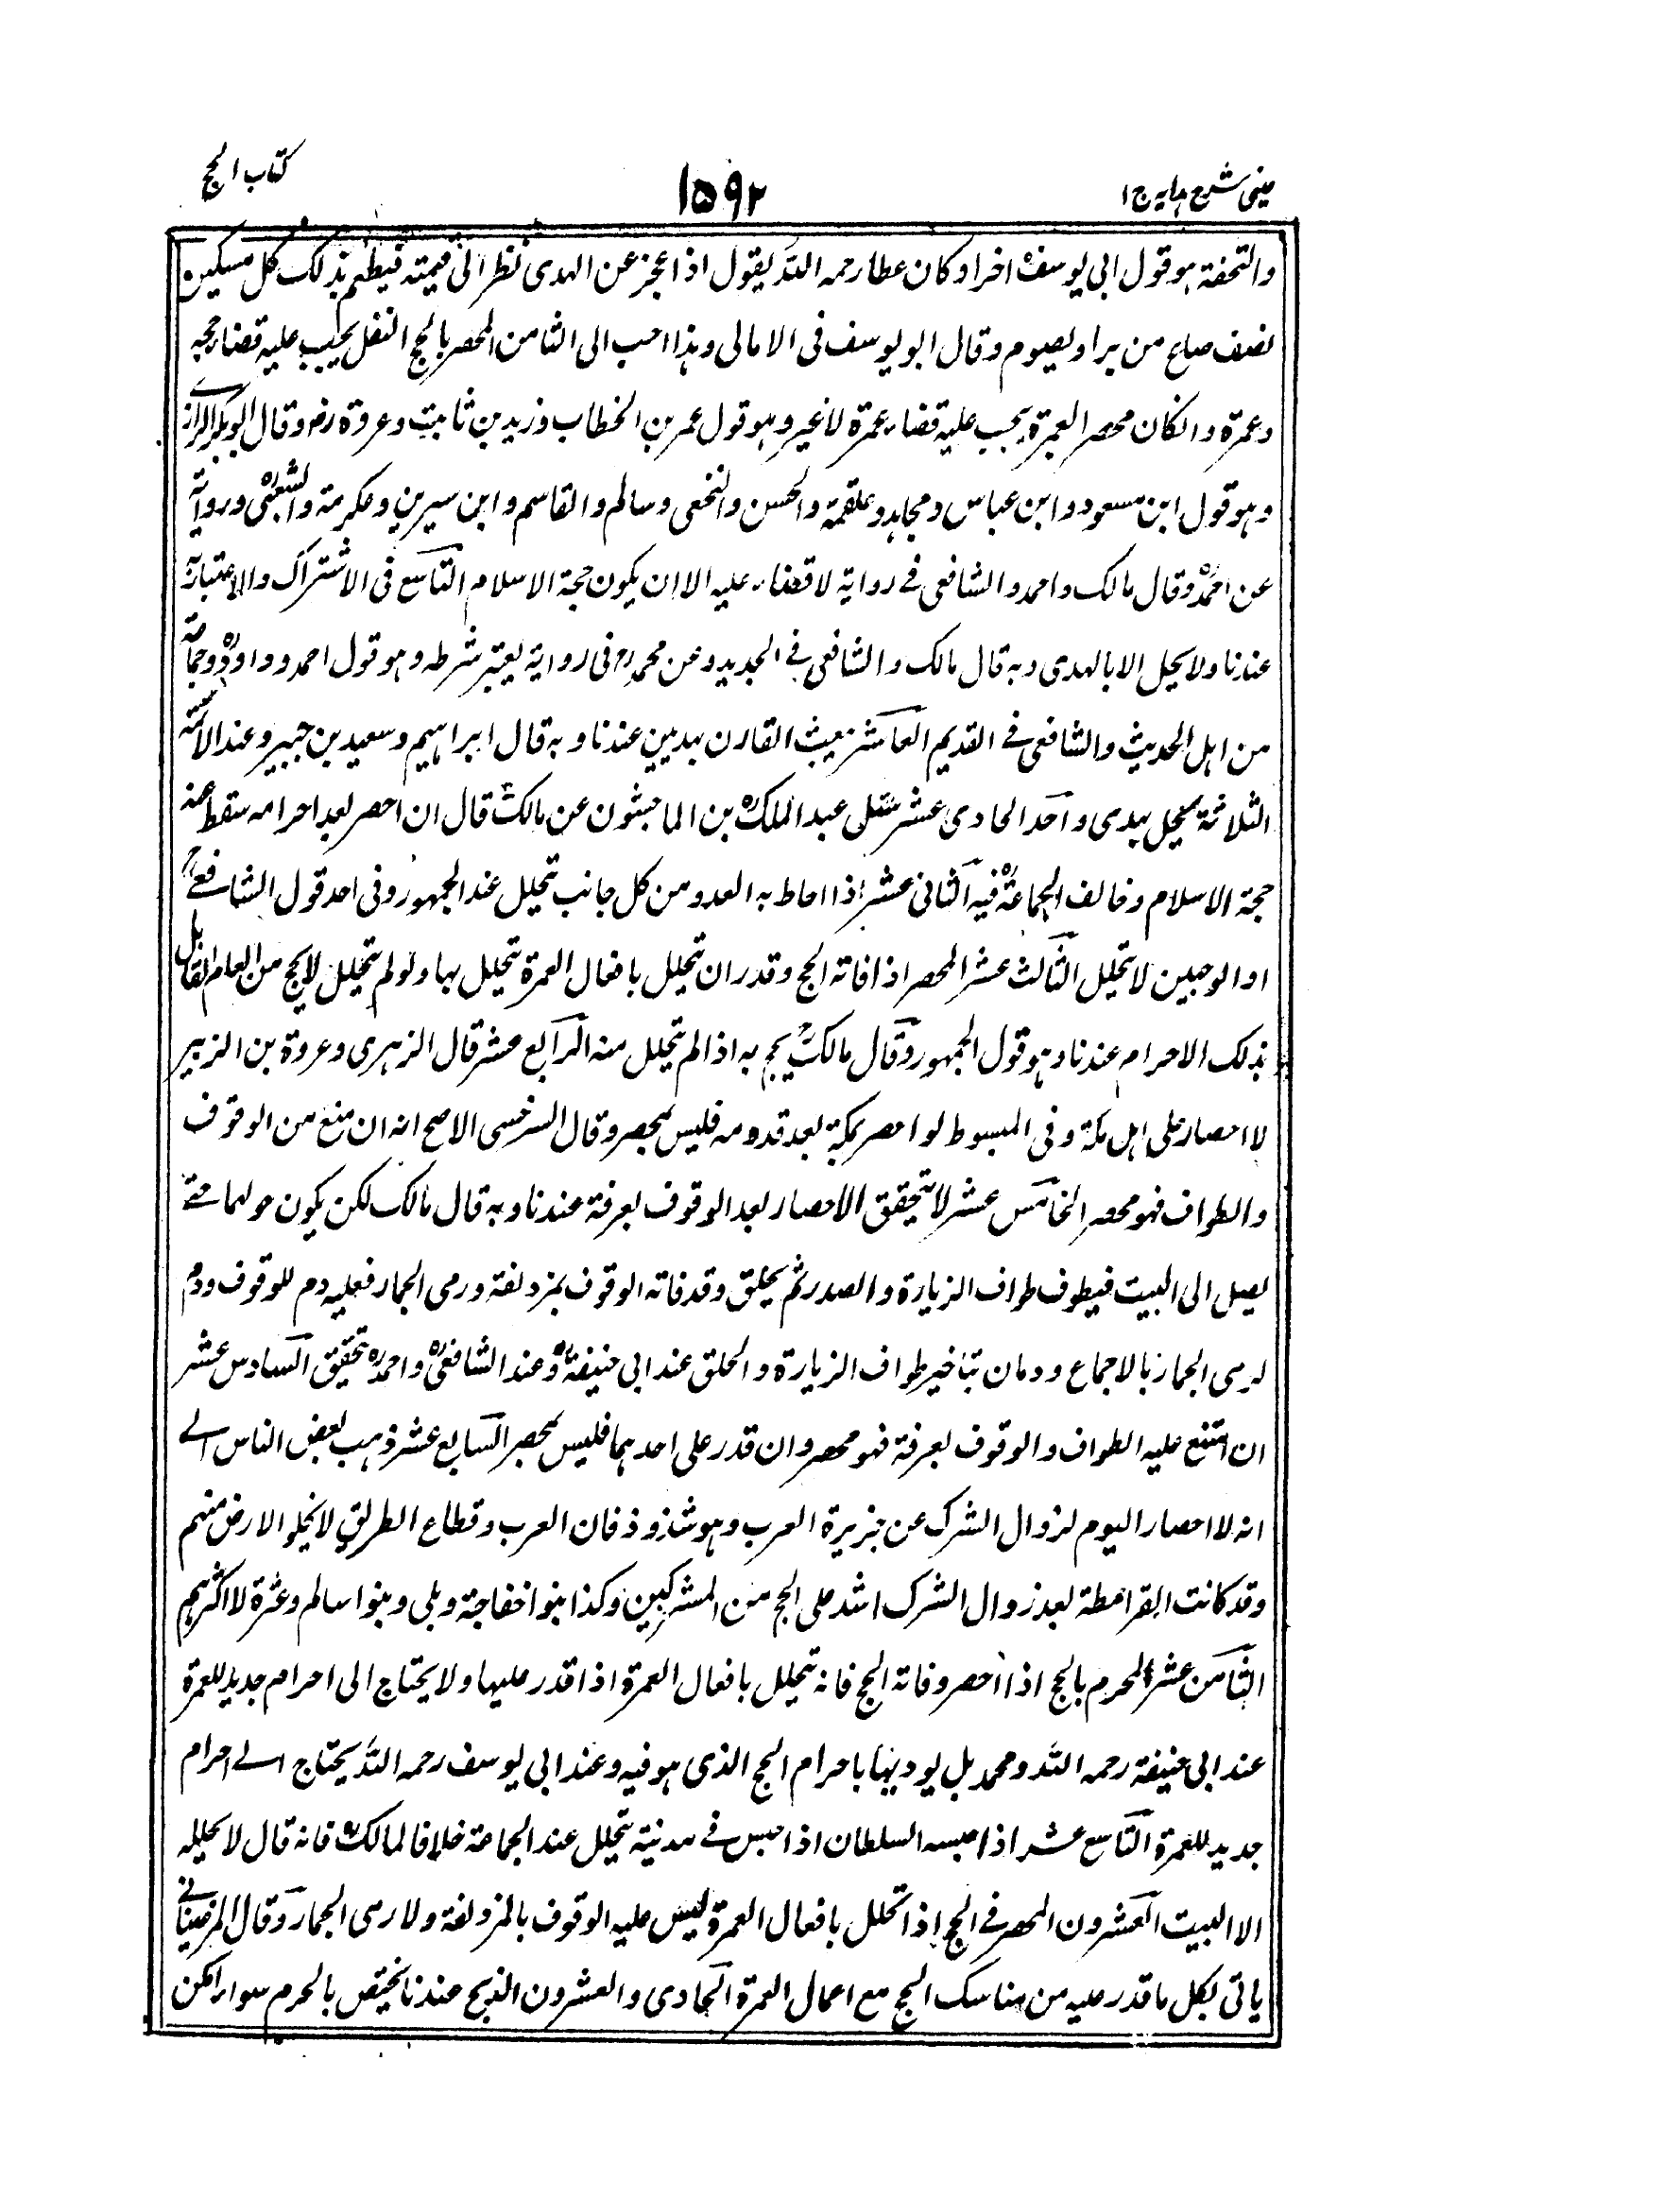 عینی شرح ہدایہ ج ۱
۱۵۹۲
کتاب الحج
والتحفة ہو قول ابی یوسفؒ اخرا وکان عطا رحمہ اللہ یقول اذا عجز عن الہدی نظر الی قیمتہ فیطعم بذلک کل مسکین
نصف صاع من بر او یصوم وقال ابو یوسف فی الامالی وہذا احب الی الثامن المحصر بالحج النفل یجب علیہ قضاء حجہ
وعمرة وانکان محصر العمرة یجب علیہ قضاء عمرة لا غیر وہو قول عمر بن الخطاب وزید بن ثابت وعروة رض وقال ابو بکر الرازے
وہو قول ابن مسعود وابن عباس ومجاہد وعلقمة والحسن والنخعی وسالم والقاسم وابن سیرین وعکرمة والشعبیؒ وروایة
عن احمدؒ وقال مالک واحمد والشافعی فے روایة لا قضاء علیہ الا ان یکون حجة الاسلام التاسع فی الاشتراک والاعتبار
عندنا ولا یحل الا بالہدی وبہ قال مالک والشافعی فے الجدید وعن محمدؒ فی روایة یعتبر شرطہ وہو قول احمد وداودؒ وجماعة
من اہل الحدیث والشافعی فے القدیم العاشر یبعث القارن بہدیین عندنا وبہ قال ابراہیم وسعید بن جبیر وعند الائمة
الثلاثة یتحلل بہدی واحد الحادی عشر نقل عبد الملکؒ بن الماجشون عن مالکؒ قال ان احصر بعد احرامہ سقط عنہ
حجة الاسلام وخالف الجماعةؒ فیہ الثانی عشر اذا احاط بہ العدو من کل جانب تحلل عند الجمہور وفی احد قول الشافعےؒ
او الوجہین لا تحلل الثالث عشر المحصر اذا فاتہ الحج وقدر ان تحلل بافعال العمرة تحلل بہا ولو لم تحلل لا یحج من العام القابل
بذلک الاحرام عندنا وہو قول الجمہور وقال مالکؒ یحج بہ اذا لم تحلل منہ الرابع عشر قال الزہری وعروة بن الزبیر
لا احصار علی اہل مکة وفی المبسوط لو احصر بمکة بعد قدومہ فلیس بمحصر وقال السرخسی الاصح انہ ان منع من الوقوف
والطواف فہو محصر الخامس عشر لا یتحقق الاحصار بعد الوقوف بعرفة عندنا وبہ قال مالک لکن یکون حراما حتے
یصل الی البیت فیطوف طواف الزیارة والصدر ثم یحلق وقد فاتہ الوقوف بمزدلفة ورمی الجمار فعلیہ دم للوقوف ودم
لرمی الجمار بالاجماع ودمان بتاخیر طواف الزیارة والحلق عند ابی حنیفةؒ وعند الشافعیؒ واحمدؒ یتحقق السادس عشر
ان امتنع علیہ الطواف والوقوف بعرفة فہو محصر وان قدر علی احدہما فلیس بمحصر السابع عشر ذہب بعض الناس الے
انہ لا احصار الیوم لزوال الشرک عن جزیرة العرب وہو شذوذ فان العرب وقطاع الطریق لا یخلو الارض منہم
وقد کانت القرامطة بعد زوال الشرک اشد علی الحج من المشرکین وکذا بنوا خفاجة وبلی وبنوا سالم وغزة لا اکثرہم
الثامن عشر المحرم بالحج اذا احصر وفاتہ الحج فانہ تحلل بافعال العمرة اذا قدر علیہا ولا یحتاج الی احرام جدید للعمرة
عند ابی حنیفة رحمہ اللہ ومحمد بل یودیہا باحرام الحج الذی ہو فیہ وعند ابی یوسف رحمہ اللہ یحتاج الے احرام
جدید للعمرة التاسع عشر اذا حبسہ السلطان اذا حبس فے مدینة تحلل عند الجماعة خلافا لمالکؒ فانہ قال لا یحللہ
الا البیت العشرون المحصر فے الحج اذا تحلل بافعال العمرة لیس علیہ الوقوف بالمزدلفة ولا رمی الجمار وقال المرغینانے
یاتی بکل ما قدر علیہ من مناسک الحج مع اعمال العمرة الحادی والعشرون الذبح عندنا یختص بالحرم سواء امکن